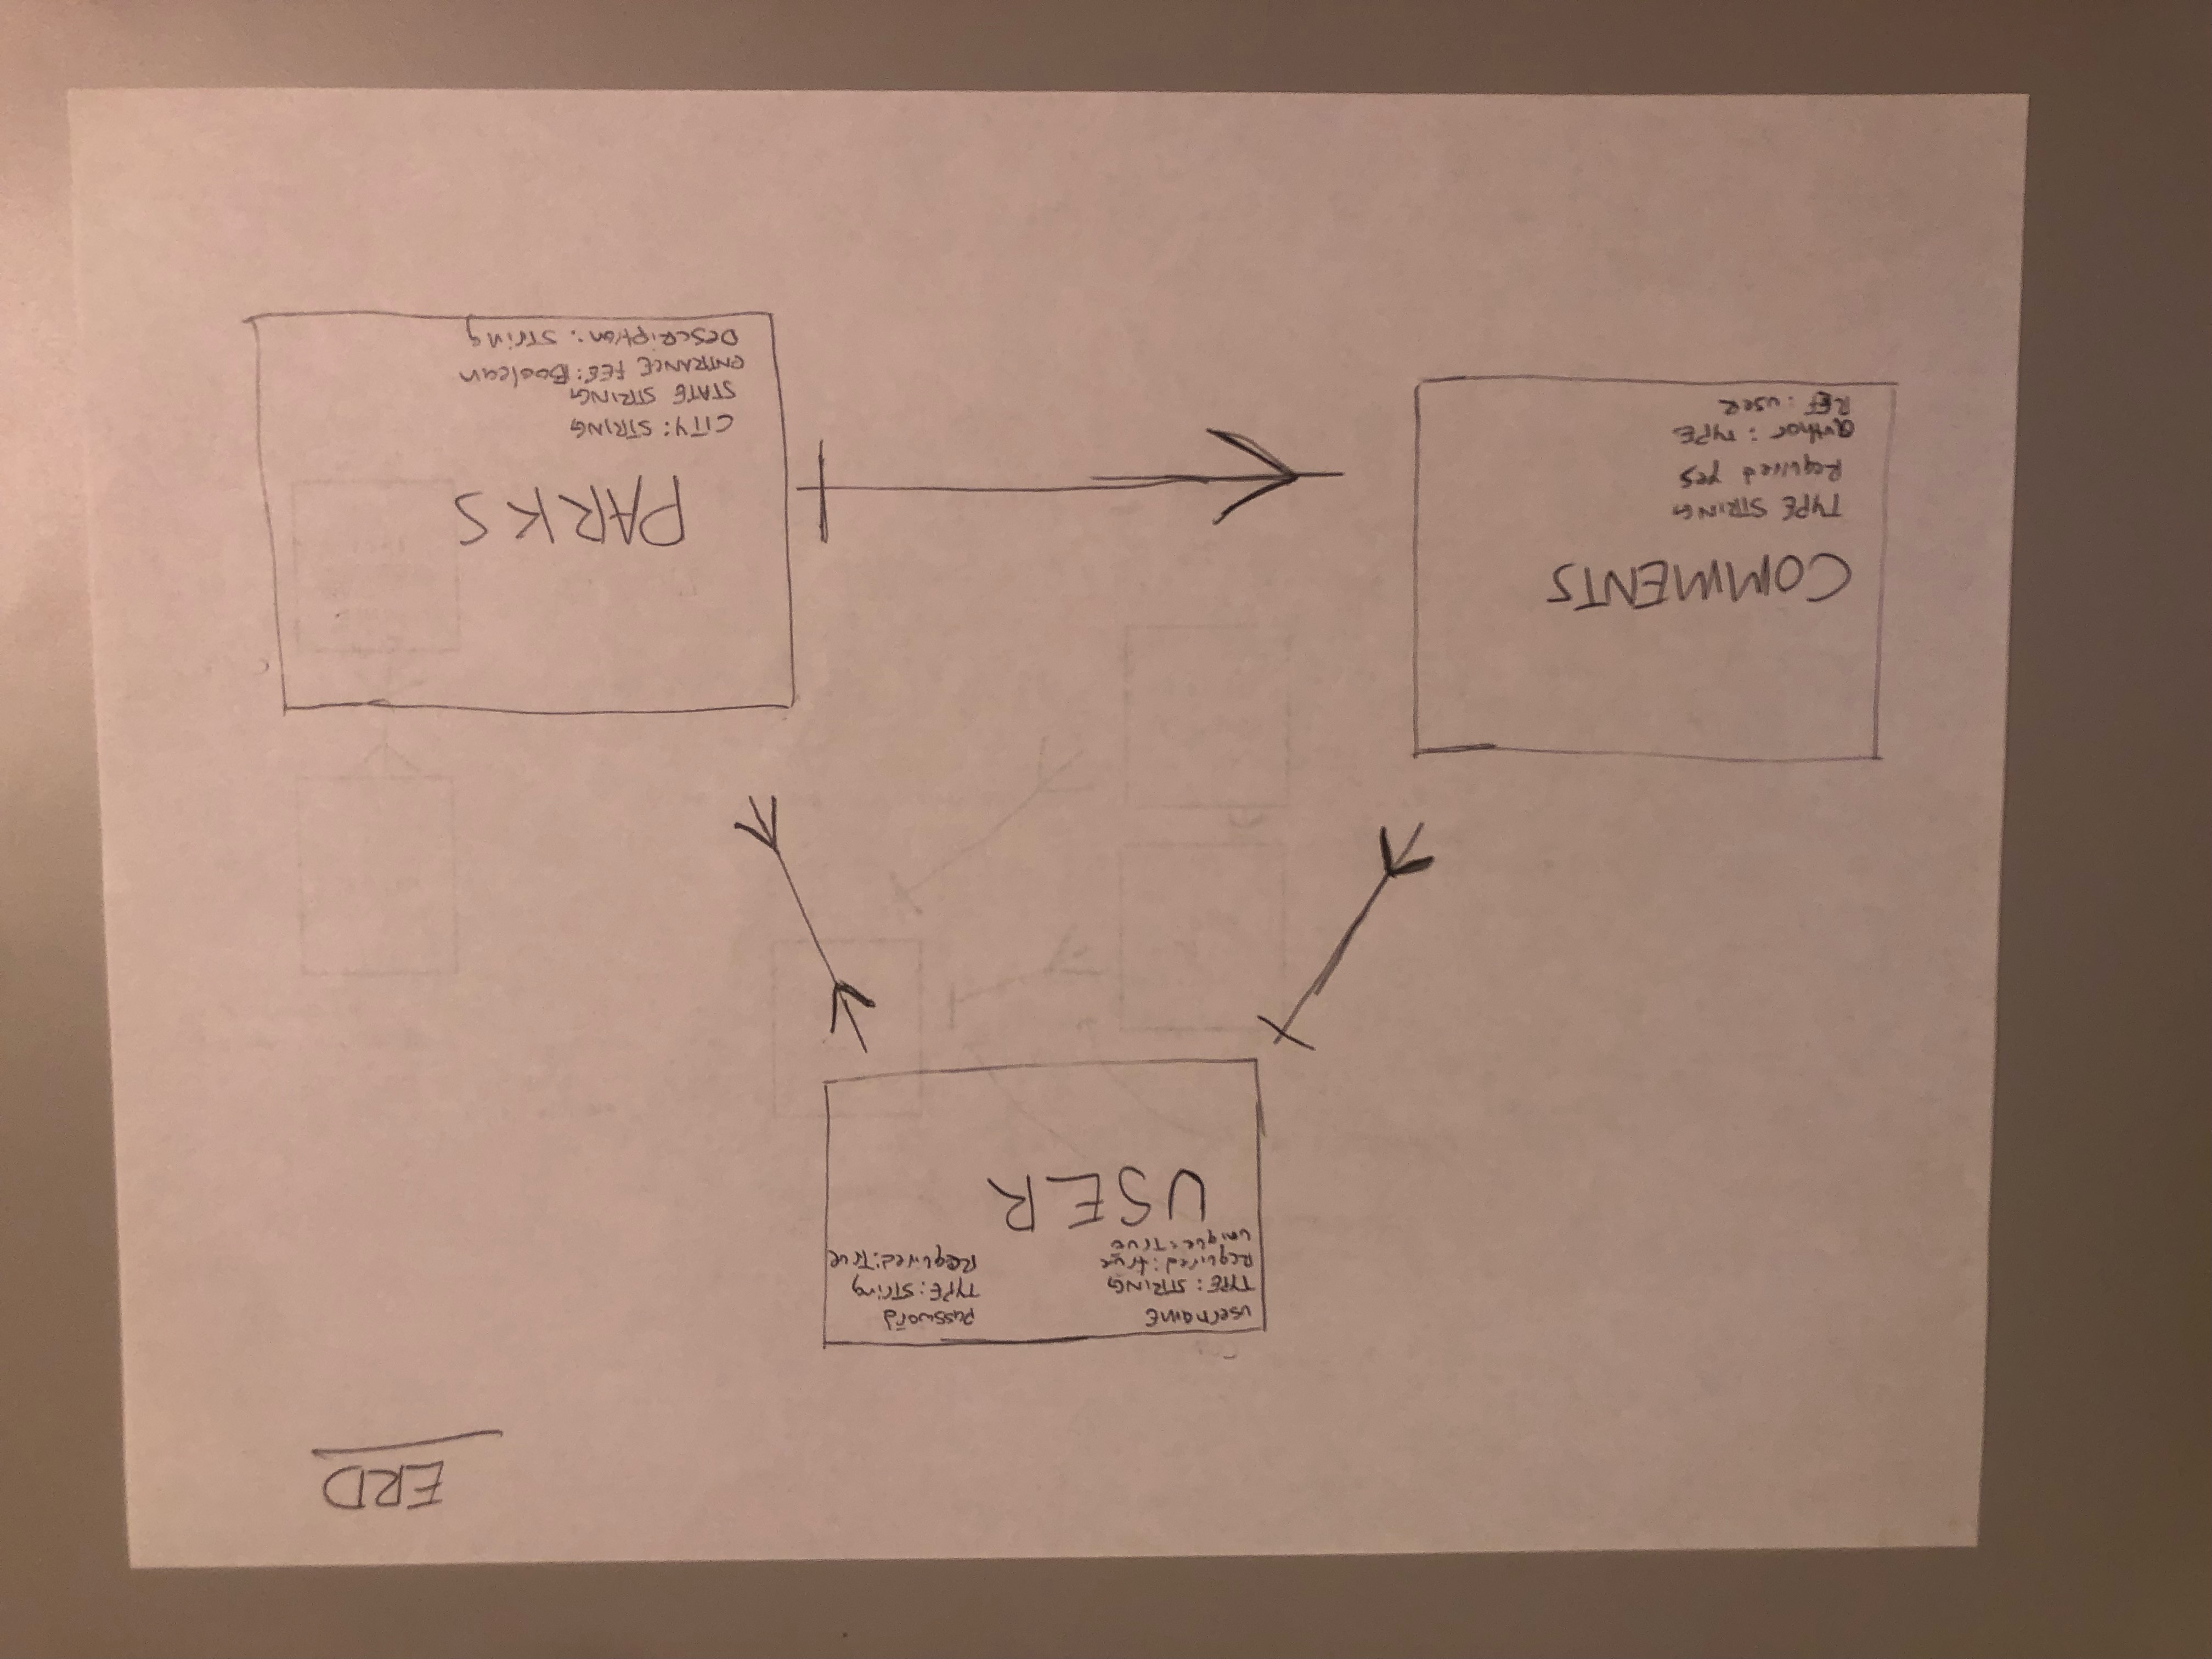 ERD
username
TYPE: STRING
Required: true
unique: True
password
TYPE: String
Required: True
USER
COMMENTS
TYPE STRING
Required yes
author: TYPE
REF: useR
PARKS
CITY: STRING
STATE STRING
ENTRANCE FEE: Boolean
Description: String